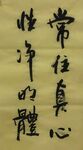 常住真心
性净明體